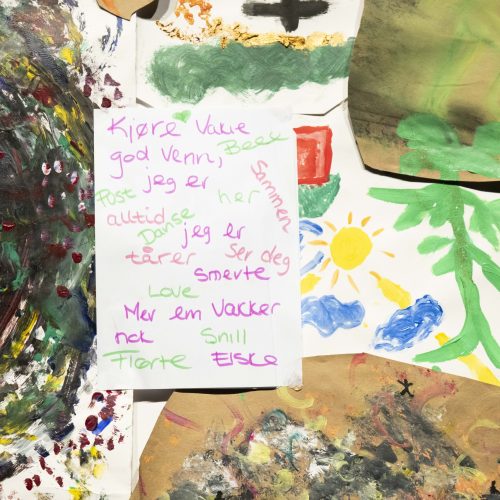 Kjøre Vakre
god Venn, Beee
jeg er Sammen
Pust her
alltid Danse
jeg er
tårer Ser deg
smerte
Love
Mer em Vakker
nok Snill
Flørte Elske